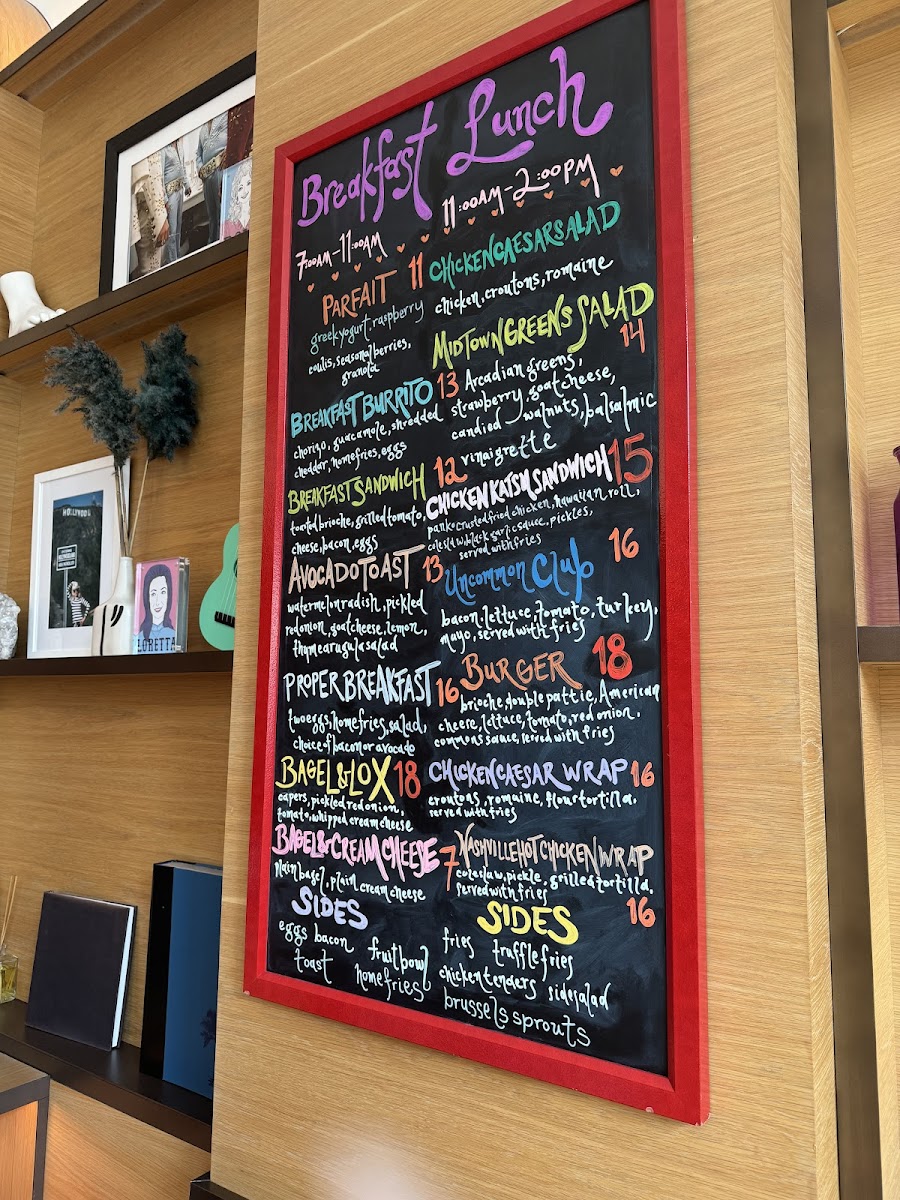 Breakfast
7:00AM-11:00AM
PARFAIT 11
greek yogurt, raspberry
coulis, seasonal berries,
granola
BREAKFAST BURRITO 13
chorizo, guacamole, shredded
cheddar, homefries, eggs
BREAKFAST SANDWICH 12
toasted brioche, grilled tomato,
cheese, bacon, eggs
AVOCADO TOAST 13
watermelon radish, pickled
red onion, goat cheese, lemon,
thyme arugula salad
PROPER BREAKFAST 16
two eggs, homefries, salad,
choice of bacon or avocado
BAGEL & LOX 18
capers, pickled red onion,
tomato, whipped cream cheese
BAGEL & CREAM CHEESE 7
plain bagel, plain cream cheese
SIDES
eggs bacon
toast
fruit bowl
homefries
Lunch
11:00AM-2:00PM
CHICKEN CAESAR SALAD
chicken, croutons, romaine
MIDTOWN GREENS SALAD
14
Arcadian greens,
strawberry, goat cheese,
candied walnuts, balsamic
vinaigrette
CHICKEN KATSU SANDWICH 15
panko crusted fried chicken, hawaiian roll,
coleslaw, black garlic sauce, pickles,
served with fries
Uncommon Club 16
bacon, lettuce, tomato, turkey,
mayo, served with fries
BURGER 18
brioche double pattie, American
cheese, lettuce, tomato, red onion,
commons sauce, served with fries
CHICKEN CAESAR WRAP 16
croutons, romaine, flour tortilla,
served with fries
NASHVILLE HOT CHICKEN WRAP
coleslaw, pickle, grilled tortilla,
served with fries
16
SIDES
fries truffle fries
chicken tenders side salad
brussels sprouts
HOLLYWOOD
LORETTA